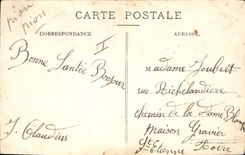 pion
pion
CARTE POSTALE
CORRESPONDANCE
ADRESSE
I
Bonne Santée Bonjour
J. Claudius
Madame Joubert
rue Richelandière
chemin de la Dame Blanche
maison Gravier
St Etienne
Loire